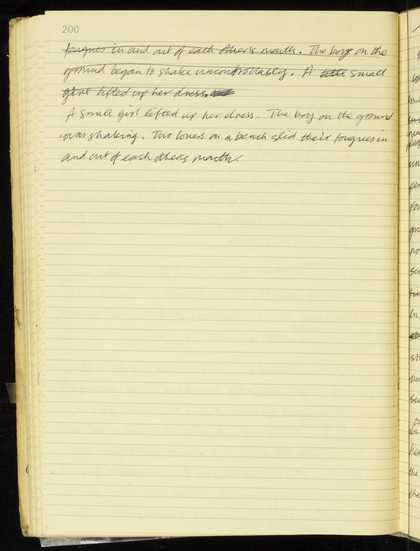 200
tongues in and out of each others mouth. The boy on the
ground began to shake uncontrollably. A little small
girl lifted up her dress.
A small girl lifted up her dress. The boy on the ground
was shaking. Two lovers on a bench slid their tongues in
and out of each others mouth.